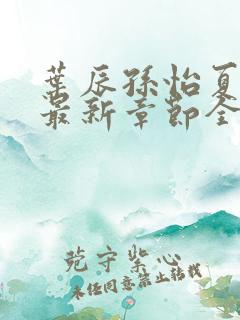 叶辰孙怡夏
最新章节全
苑守紫心
未经同意禁止转载